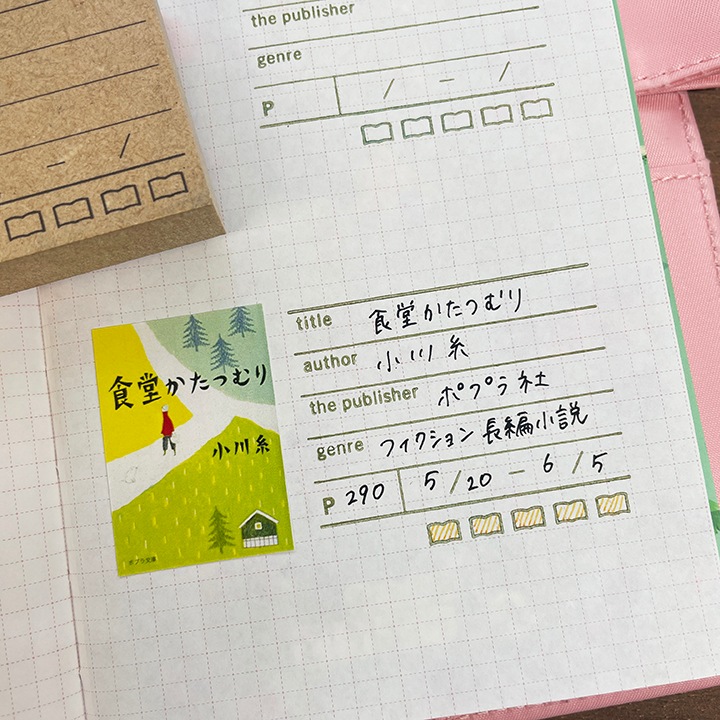 the publisher
genre
P / - /
- /
title 食堂かたつむり
author 小川糸
the publisher ポプラ社
genre フィクション 長編小説
P 290 5/20 - 6/5
食堂かたつむり
小川糸
ポプラ文庫